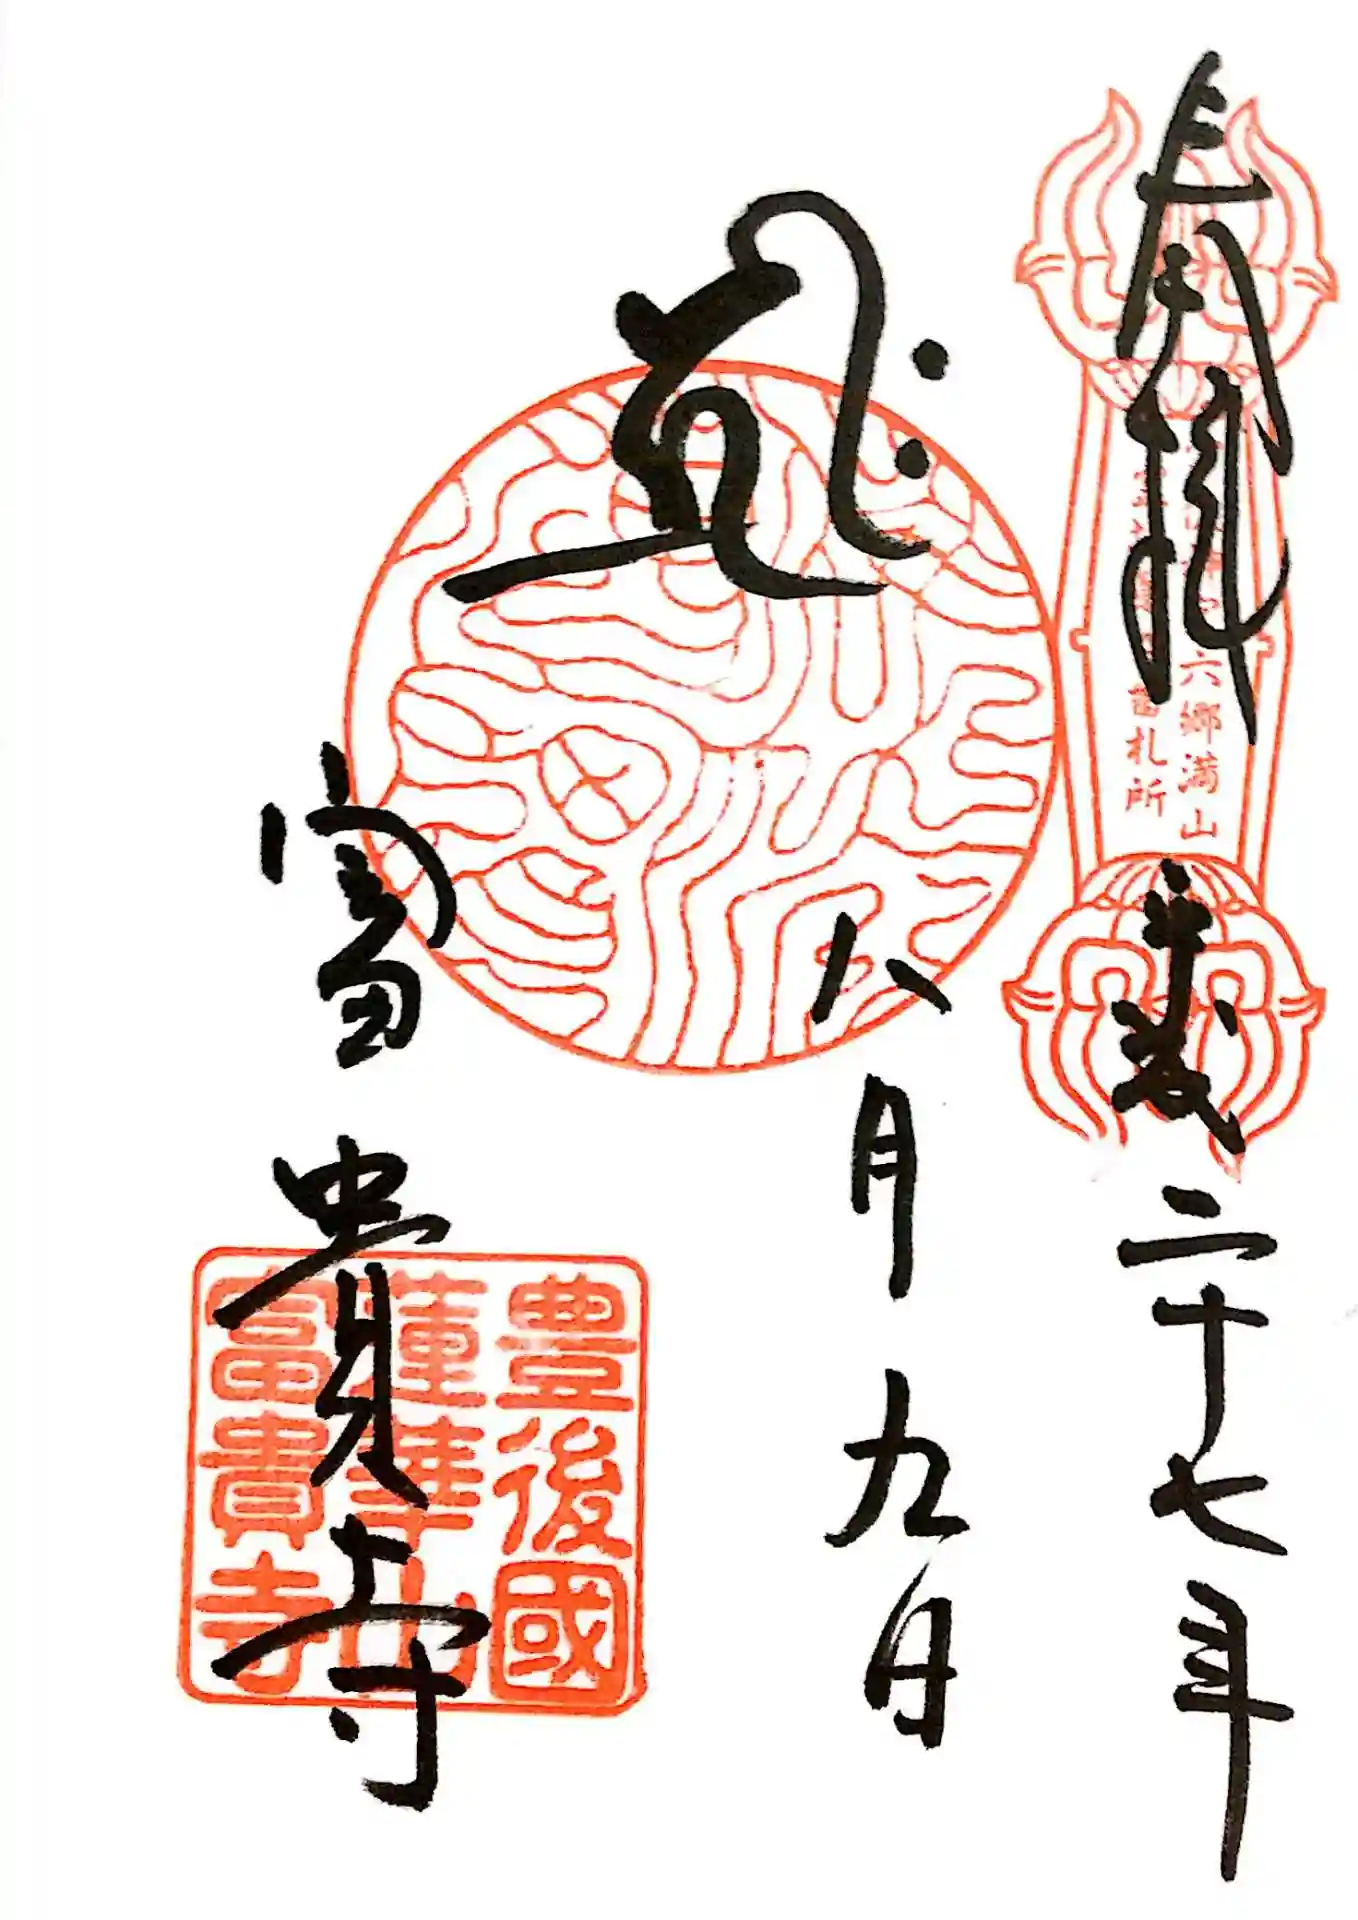 奉拝
六郷満山
番札所
平成二十七年
八月九日
富貴寺
豊後國
蓮華山
富貴寺